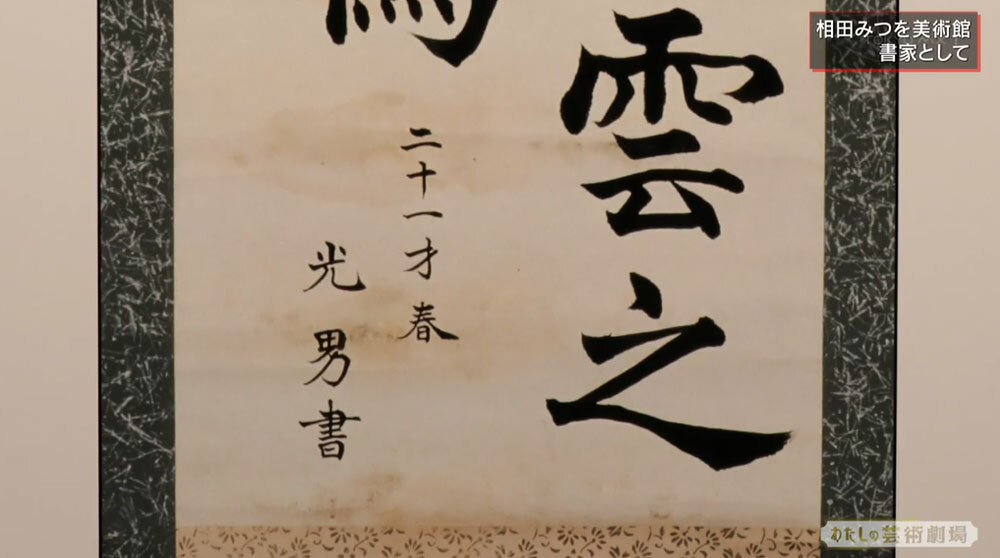 相田みつを美術館
書家として
雲之
二十一才春
光男書
わたしの芸術劇場